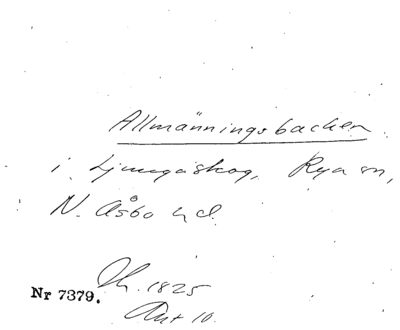 Allmänningsbacken
i Ljungaskog, Rya sn,
N. Åsbo hd.
Nr 7379.
1825
Akt 10.